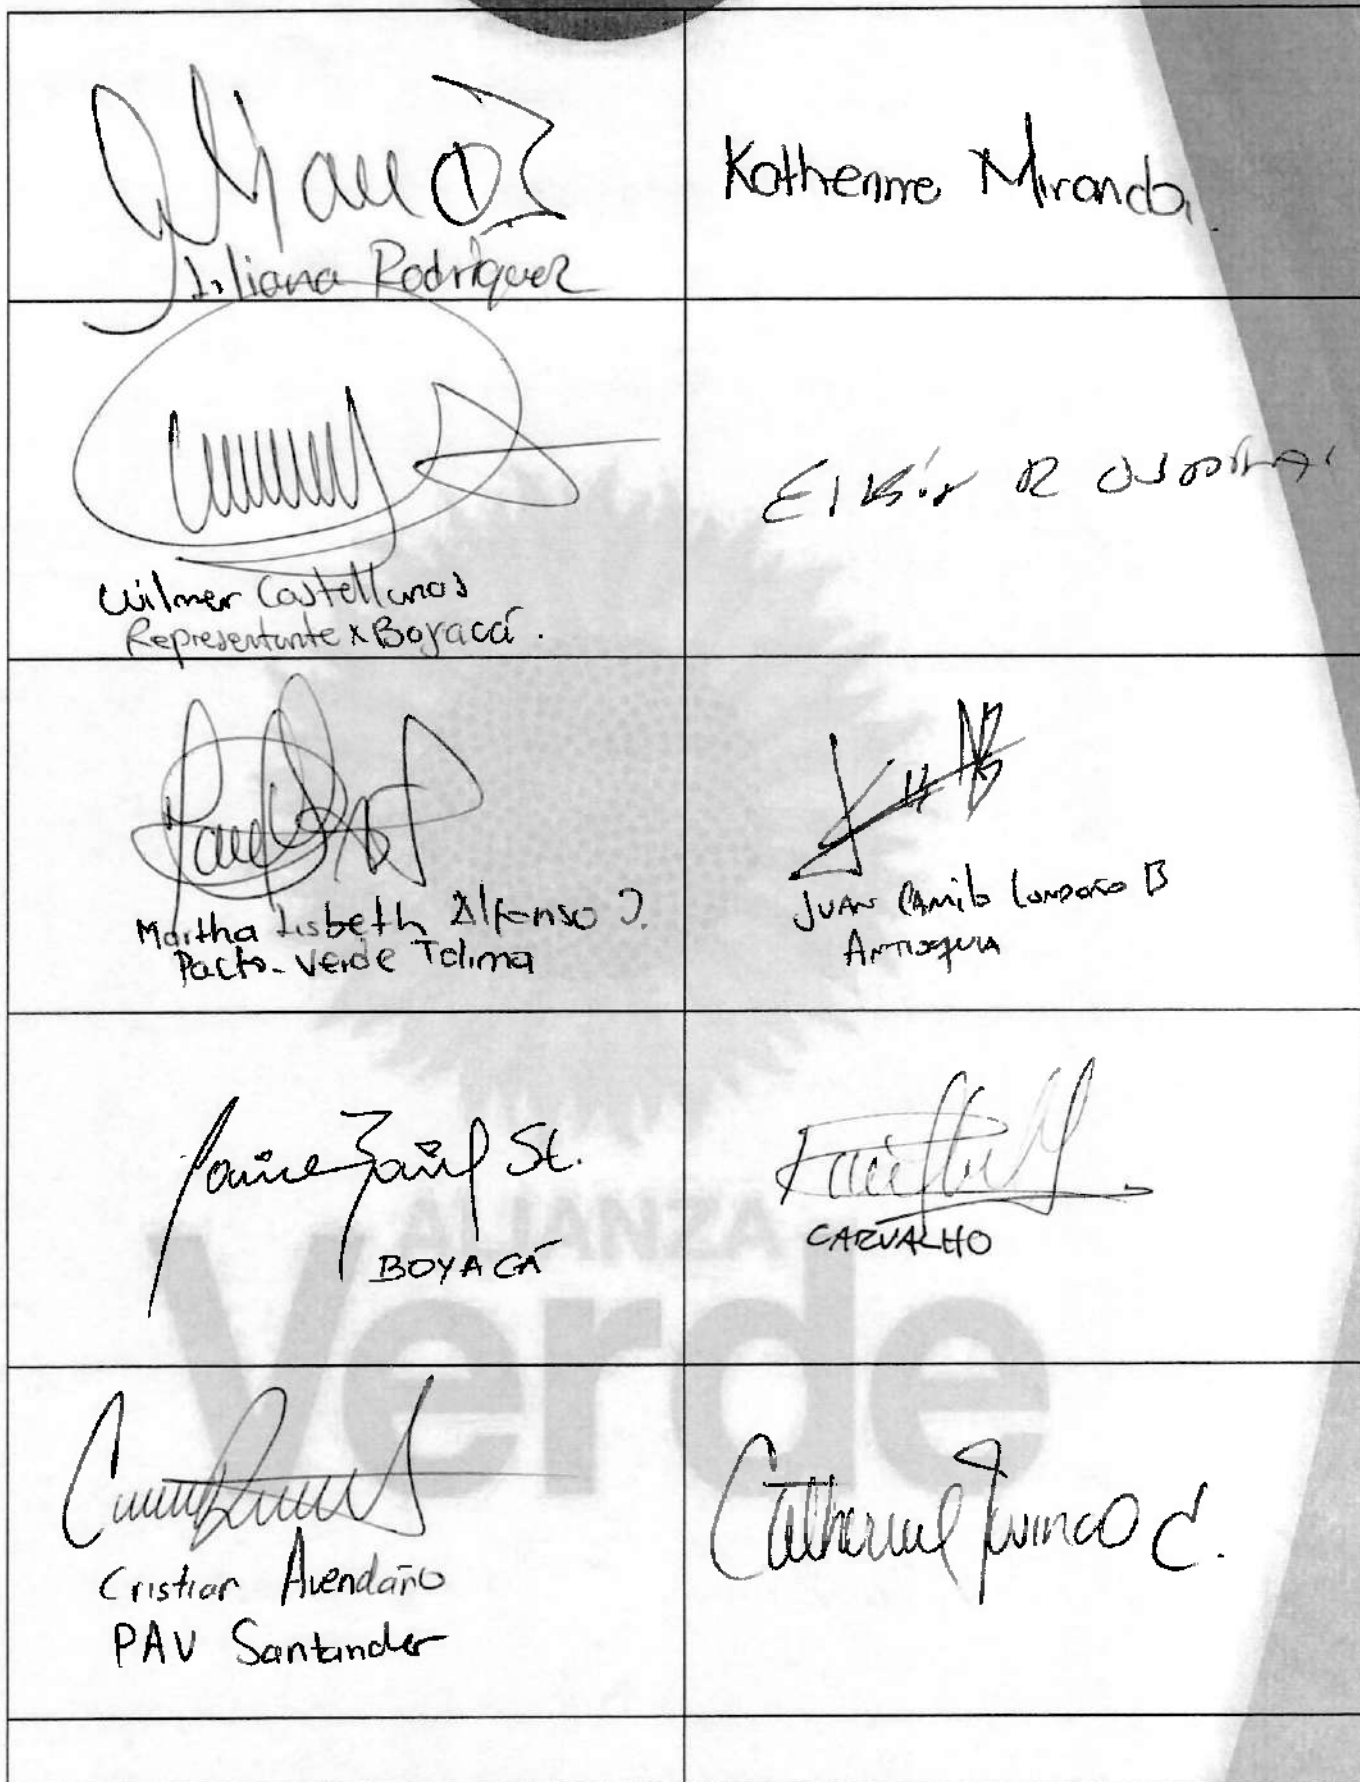 Liliana Rodríguez
Katherine Miranda
Wilmer Castellanos
Representante x Boyacá.
Martha Lisbeth Alfonso J.
Pacto-Verde Tolima
JUAN CAMILO LONDOÑO B
ANTIOQUIA
Jaime Raúl S.
BOYACÁ
CARVALHO
Cristian Avendaño
PAV Santander
Catherine Juvinao C.
ALIANZA
Verde